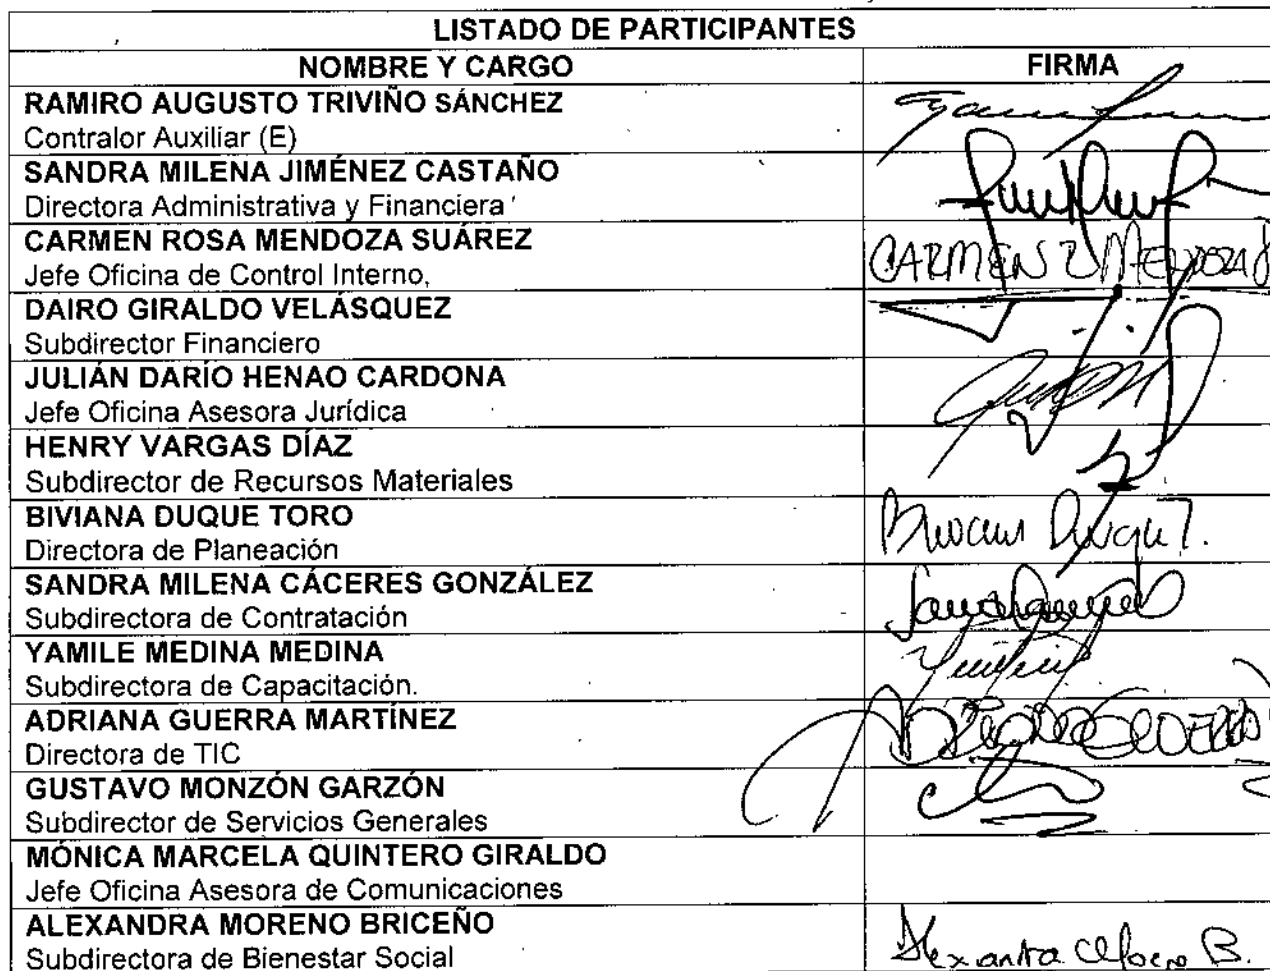 LISTADO DE PARTICIPANTES
NOMBRE Y CARGO FIRMA
RAMIRO AUGUSTO TRIVIÑO SÁNCHEZ
Contralor Auxiliar (E)
SANDRA MILENA JIMÉNEZ CASTAÑO
Directora Administrativa y Financiera
CARMEN ROSA MENDOZA SUÁREZ
Jefe Oficina de Control Interno, CARMEN R MENDOZA S
DAIRO GIRALDO VELÁSQUEZ
Subdirector Financiero
JULIÁN DARÍO HENAO CARDONA
Jefe Oficina Asesora Jurídica
HENRY VARGAS DÍAZ
Subdirector de Recursos Materiales
BIVIANA DUQUE TORO
Directora de Planeación Biviana Duque T.
SANDRA MILENA CÁCERES GONZÁLEZ
Subdirectora de Contratación
YAMILE MEDINA MEDINA
Subdirectora de Capacitación.
ADRIANA GUERRA MARTÍNEZ
Directora de TIC
GUSTAVO MONZÓN GARZÓN
Subdirector de Servicios Generales
MÓNICA MARCELA QUINTERO GIRALDO
Jefe Oficina Asesora de Comunicaciones
ALEXANDRA MORENO BRICEÑO
Subdirectora de Bienestar Social Alexandra B.